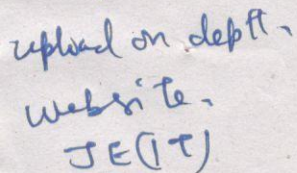 upload on deptt.
website.
JE(IT)